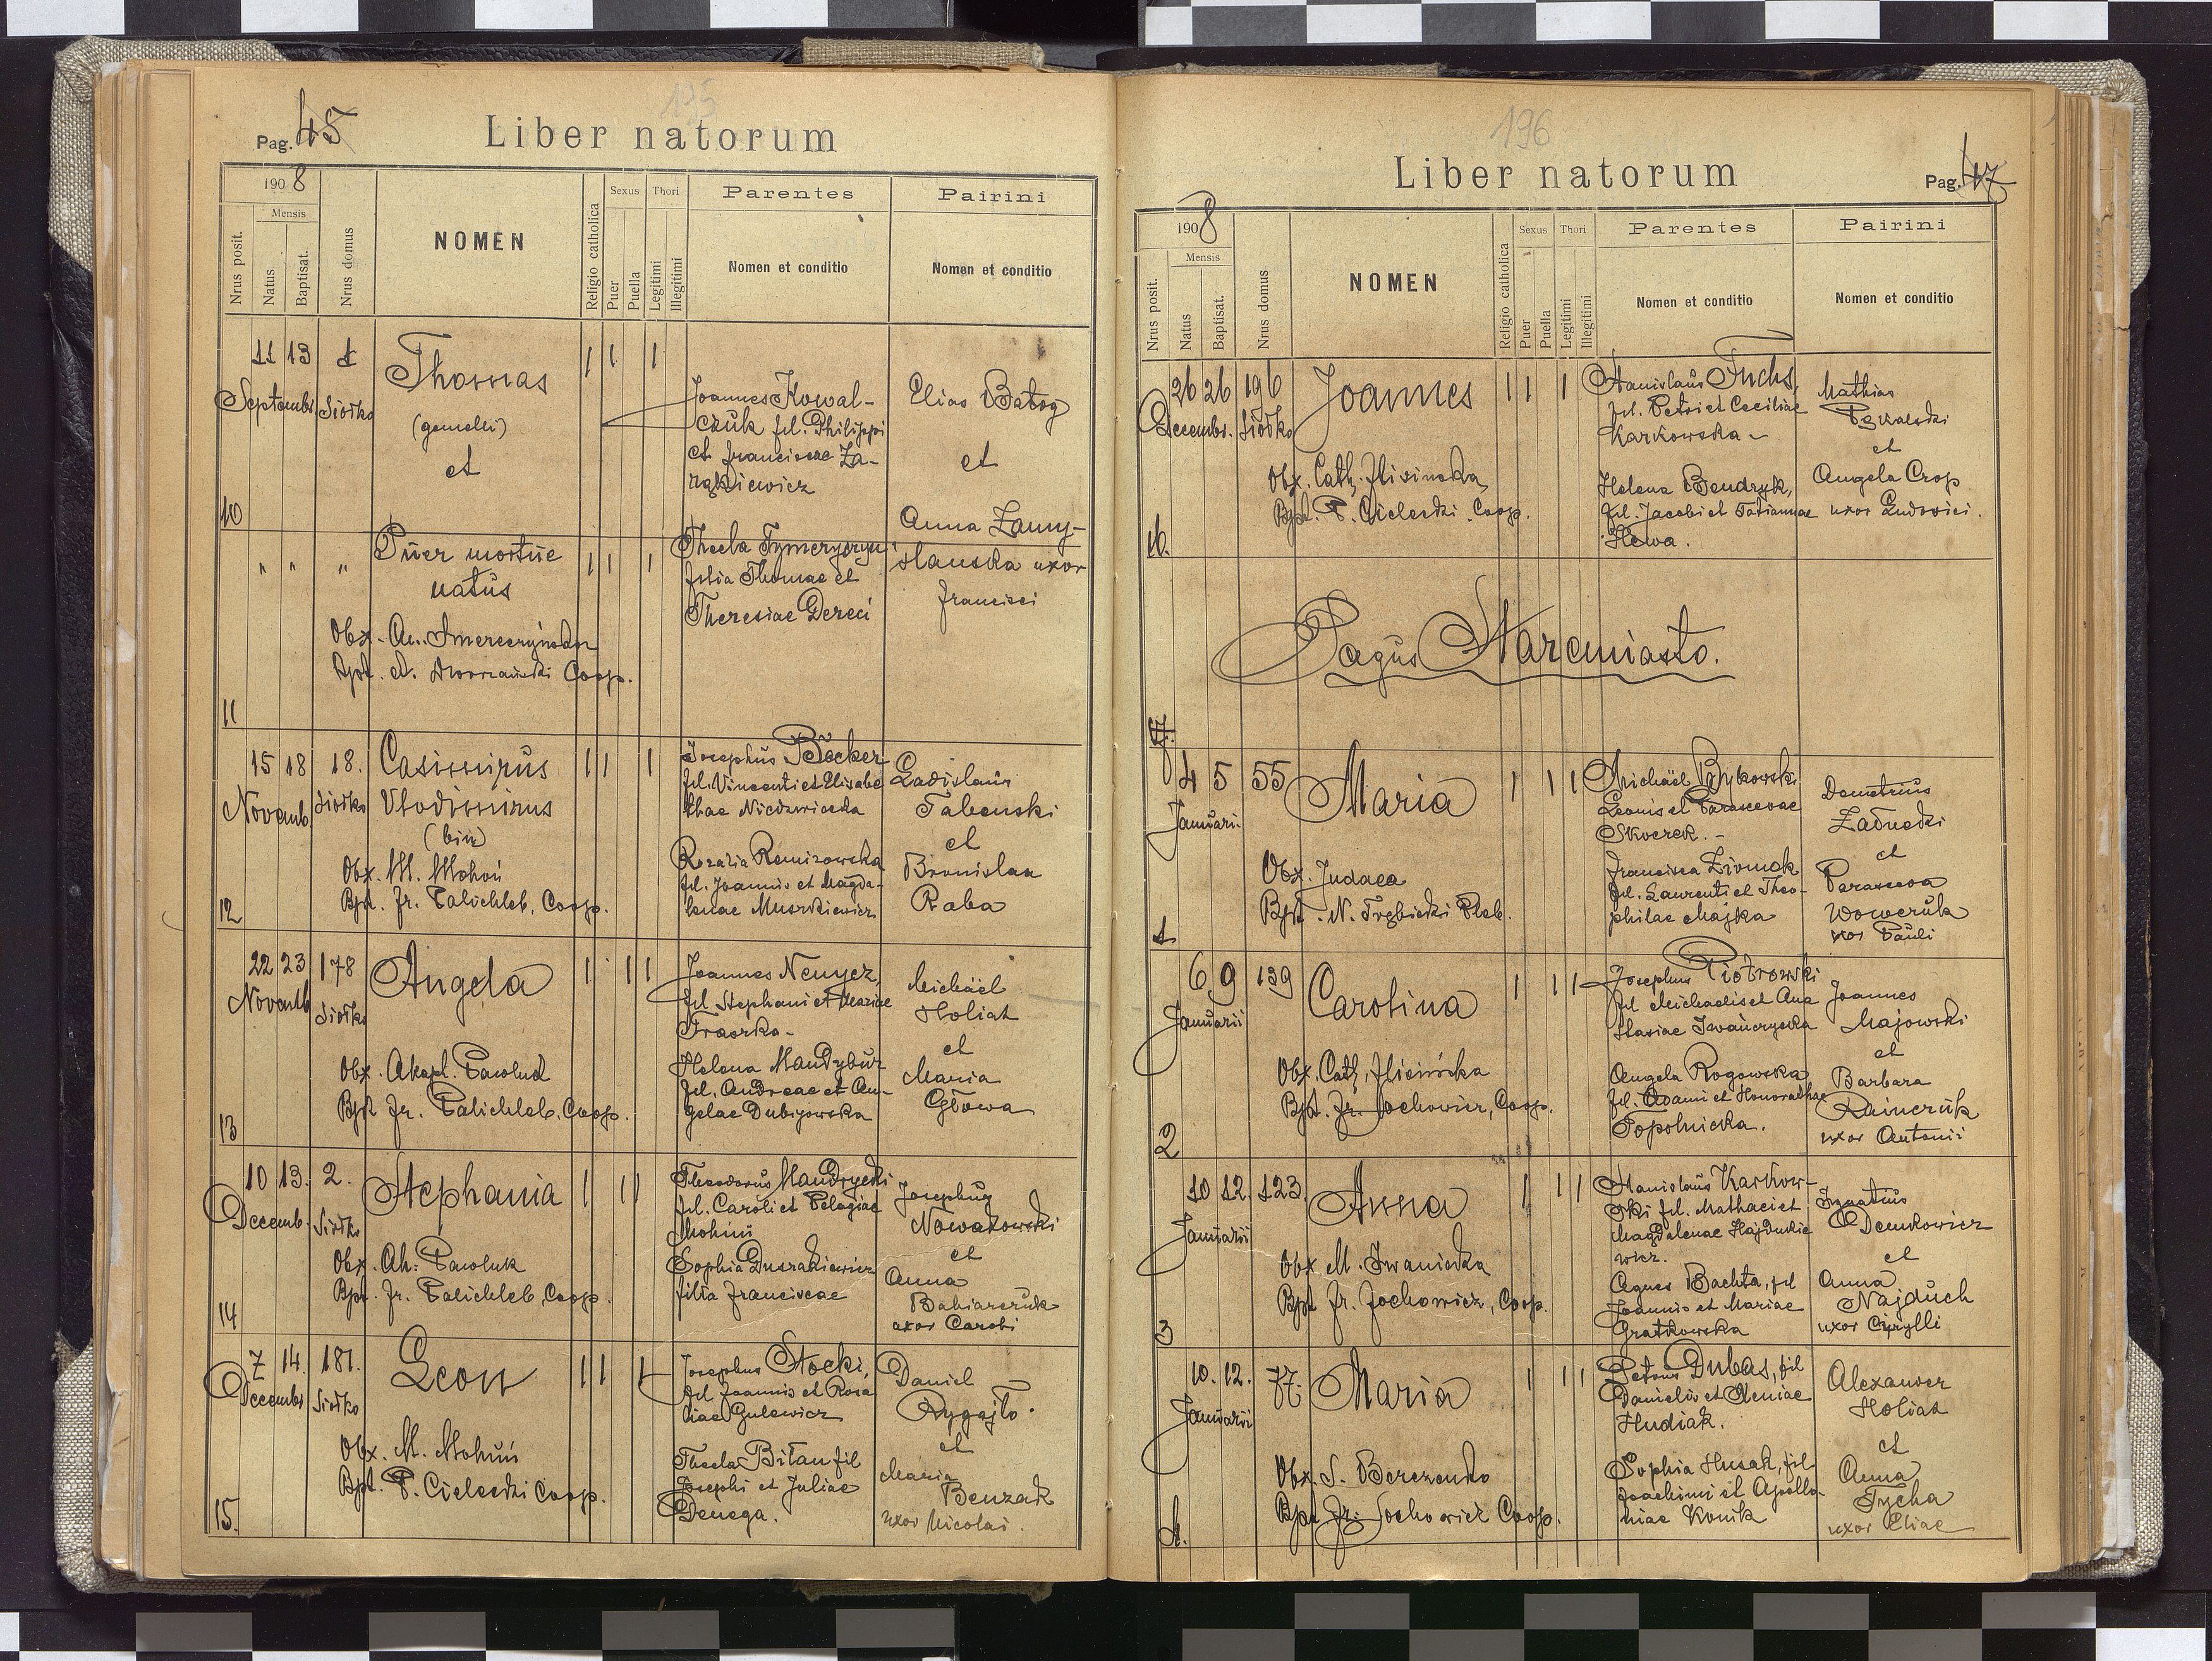 195
Pag. 45
Liber natorum
1908
Mensis
Nrus posit.
Natus
Baptisat.
Nrus domus
NOMEN
Religio catholica
Sexus
Puer
Puella
Thori
Legitimi
Illegitimi
Parentes
Nomen et conditio
Pairini
Nomen et conditio
11 13 1
Septembr. Siółko
Thomas
(gemelli)
et
1 1 1
Joannes Kowal-
czuk fil. Philippi
et Franciscae
Elias Batog
et
Anna
10
" " "
Puer mortue
natus
1 1 1
Thecla
filia Thomae et
Theresiae Dereci
uxor
Francisci
Obx.
Bpt. Coop.
11
15 18 18.
Novemb. Siółko
Casimirus
Vlodimirus
(bin)
1 1 1
Josephus Böcker
fil. Vincenti et Elisabe
thae Niedzwiecka
Rozalia Remizowska
fil. Joannis et Magda-
lenae Muszkiewicz
Ladislaus
Tabenski
et
Bronislaa
Raba
Obx. M. Mohuń
Bpt. Fr. Palichleb, Coop.
12
22 23 178
Novemb Siółko
Angela
1 1 1
Joannes Nemyez,
fil Stephani et Mariae
Fraszka-
Helena Mandybur
fil. Andreae et An-
gelae Dubizowska
Michaël
Holiat
et
Maria
Głowa
Obx. Pawluk
Bpt Fr. Palichleb, Coop.
13
10 13. 2.
Decemb. Siółko
Stephania
1 1 1
Theodorus Mandrycki
fil. Caroli et Pelagiae
Mohuń
Sophia Duszakiewicz
filia Franciscae
Josephus
Nowakowski
et
Anna
uxor Caroli
Obx. Ah. Pawluk
Bpt. Fr. Palichleb, Coop.
14
7 14. 181.
Decembr Siółko
Leon
1 1 1
Josephus Stocki,
fil Joannis et Rosa
liae Gulewicz
Thecla Bitan fil
Josephi et Juliae
Denega.
Daniel
Rygajło.
et
Maria
Benzak
uxor Nicolai.
Obx. M. Mohuń
Bpt. P. Cieleski Coop.
15.
196
Liber natorum
Pag. 47
1908
Mensis
Nrus posit.
Natus
Baptisat.
Nrus domus
NOMEN
Religio catholica
Sexus
Puer
Puella
Thori
Legitimi
Illegitimi
Parentes
Nomen et conditio
Pairini
Nomen et conditio
26 26 196
Decembr. Siółko
Joannes
1 1 1
Stanislaus Fuchs,
fil. Petri et Ceciliae
Karkowska -
Helena Bendryk,
fil. Jacobi et Tatiannae
Hlewa.
Mathias
et
Angela Crop
uxor Ludovici.
Obx. Cath. Hlivinska,
Bpt. P. Cieleski. Coop.
16.
Pagus Staremiasto.
4 5 55
Januari.
Maria
1 1 1
Michaël Bykowski
Leonis et Parascevae
Skverek. -
Francisca
fil. Laurenti et Theo-
philae Majka
Demetrius
Zadnedki
et
Parasceva
Woweruk
uxor Pauli
Obx. Judaea
Bpt. N. Trębicki Pleb.
1
6 9 139
Januarii
Carolina
1 1 1
Josephus Piotrowski
fil Michaelis et Ana
stasiae Iwańczycka
Angela Rogowska
fil. Adami et Honorathae
Topolnicka.
Joannes
Majowski
et
Barbara
Rainczuk
uxor Antonii
Obx. Cath. Hlivińska
Bpt. Fr. Sochowicz, Coop.
2
10 12. 123.
Januarii
Anna
1 1 1
Stanislaus Karkow-
ski fil. Mathaei et
Magdalenae Hajdukie
wicz.
Agnes Bachta, fil
Joannis et Mariae
Gratkowska
Ignatius
Demkowicz
et
Anna
Najduch
uxor Cyrylli
Obx M. Iwanicka
Bpt Fr. Sochowicz, Coop.
3
10. 12. 77.
Januarii
Maria
1 1 1
Petrus Dubas, fil
Danielis et Xeniae
Hudiak.
Sophia Husak, fil
Joachimi et Apollo-
niae Konik
Alexander
Holiat
et
Anna
Tycha
uxor Eliae
Obx. S. Berezenko
Bpt Fr. Sochowicz Coop.
4.